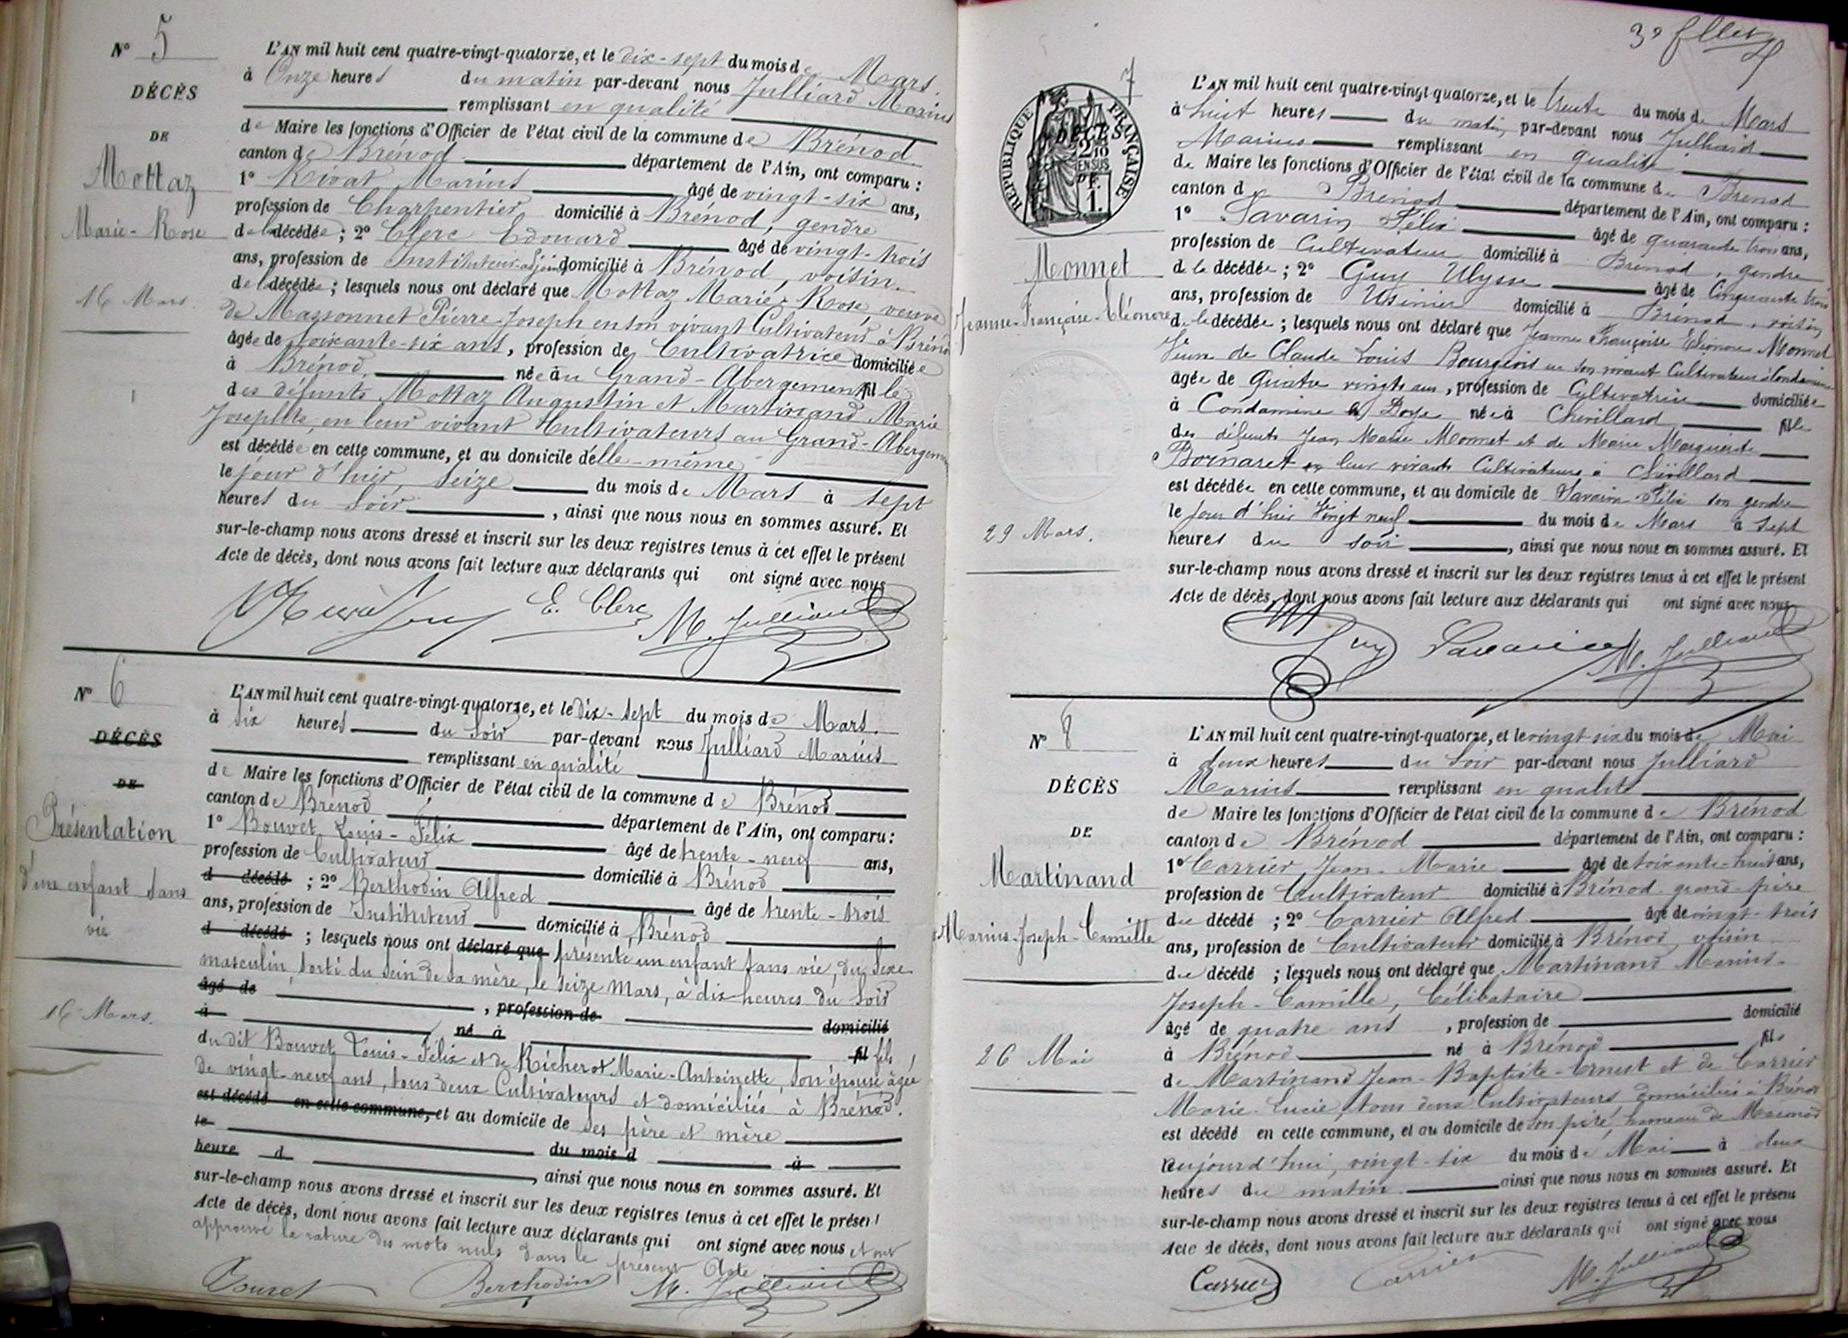 Nº 5
DÉCÈS
DE
Mottaz
Marie-Rose
16 Mars.
L'AN mil huit cent quatre-vingt-quatorze, et le dix-sept du mois de Mars.
à Onze heures du matin par-devant nous Julliard Marius
remplissant en qualité
de Maire les fonctions d'Officier de l'état civil de la commune de Brénod
canton de Brénod département de l'Ain, ont comparu :
1º Rivat Marius âgé de vingt-six ans,
profession de Charpentier domicilié à Brénod, gendre
de la décédée ; 2º Clerc Edouard âgé de vingt-trois
ans, profession de Instituteur-adjoint domicilié à Brénod, voisin.
de la décédée ; lesquels nous ont déclaré que Mottaz Marie-Rose veuve
de Massonnet Pierre-Joseph en son vivant Cultivateur à Brénod
âgée de soixante-six ans, profession de Cultivatrice domiciliée
à Brénod, née au Grand-Abergement fille
des défunts Mottaz Augustin et Martinand Marie
Josephte, en leur vivant Cultivateurs au Grand-Abergement
est décédée en cette commune, et au domicile d'elle-même
le jour d'hier, seize du mois de Mars à sept
heures du soir, ainsi que nous nous en sommes assuré. Et
sur-le-champ nous avons dressé et inscrit sur les deux registres tenus à cet effet le présent
Acte de décès, dont nous avons fait lecture aux déclarants qui ont signé avec nous
E. Clerc M. Julliard
Nº 6
DÉCÈS
DE
Présentation
d'un enfant sans
vie
16 Mars.
L'AN mil huit cent quatre-vingt-quatorze, et le dix-sept du mois de Mars.
à six heures du soir par-devant nous Julliard Marius
remplissant en qualité
de Maire les fonctions d'Officier de l'état civil de la commune de Brénod
canton de Brénod département de l'Ain, ont comparu :
1º Bouvet Louis-Félix âgé de trente-neuf ans,
profession de Cultivateur domicilié à Brénod
d décédé ; 2º Berthodin Alfred âgé de trente-trois
ans, profession de Instituteur domicilié à Brénod
d décédé ; lesquels nous ont déclaré que présenté un enfant sans vie, du sexe
masculin, sorti du sein de sa mère, le seize mars, à dix heures du soir
âgé de , profession de domicilié
à né à fil fils
du dit Bouvet Louis-Félix et de Richerot Marie-Antoinette, son épouse âgée
de vingt-neuf ans, tous deux Cultivateurs et domiciliés à Brénod.
est décédé en cette commune, et au domicile de ses père et mère
le du mois d à
heure d , ainsi que nous nous en sommes assuré. Et
sur-le-champ nous avons dressé et inscrit sur les deux registres tenus à cet effet le présent
Acte de décès, dont nous avons fait lecture aux déclarants qui ont signé avec nous et ont
approuvé la rature des mots nuls dans le présent Acte
Bouvet Berthodin M. Julliard
3e fllet
7
RÉPUBLIQUE FRANÇAISE
DÉCÈS
2/10 EN SUS
1 F.
Monnet
Jeanne-Françoise-Eléonore
29 Mars.
L'AN mil huit cent quatre-vingt-quatorze, et le trente du mois de Mars
à huit heures du matin par-devant nous Julliard
Marius remplissant en qualité
de Maire les fonctions d'Officier de l'état civil de la commune de Brénod
canton de Brénod département de l'Ain, ont comparu :
1º Savarin Félix âgé de quarante trois ans,
profession de Cultivateur domicilié à Brénod, gendre
de la décédée ; 2º Guy Ulysse âgé de Cinquante trois
ans, profession de Usinier domicilié à Brénod, voisin
de la décédée ; lesquels nous ont déclaré que Jeanne Françoise Eléonore Monnet
Veuve de Claude Louis Bourgeois en son vivant Cultivateur à Condamine
âgée de Quatre vingts ans, profession de Cultivatrice domiciliée
à Condamine la Doye née à Chevillard fille
des défunts Jean Marie Monnet et de Marie Marguerite
Bornaret en leur vivants Cultivateurs à Chevillard
est décédée en cette commune, et au domicile de Savarin Félix son gendre
le jour d'hier Vingt neuf du mois de Mars à sept
heures du soir, ainsi que nous nous en sommes assuré. Et
sur-le-champ nous avons dressé et inscrit sur les deux registres tenus à cet effet le présent
Acte de décès, dont nous avons fait lecture aux déclarants qui ont signé avec nous
Guy Savarin M. Julliard
Nº 8
DÉCÈS
DE
Martinand
Marius-Joseph-Camille
26 Mai
L'AN mil huit cent quatre-vingt-quatorze, et le vingt six du mois de Mai
à deux heures du soir par-devant nous Julliard
Marius remplissant en qualité
de Maire les fonctions d'Officier de l'état civil de la commune de Brénod
canton de Brénod département de l'Ain, ont comparu :
1º Carrier Jean-Marie âgé de soixante-huit ans,
profession de Cultivateur domicilié à Brénod grand-père
du décédé ; 2º Carrier Alfred âgé de vingt-trois
ans, profession de Cultivateur domicilié à Brénod, voisin
du décédé ; lesquels nous ont déclaré que Martinand Marius-
Joseph-Camille, Célibataire
âgé de quatre ans, profession de domicilié
à Brénod né à Brénod fils
de Martinand Jean-Baptiste-Ernest et de Carrier
Marie-Lucie, tous deux Cultivateurs domiciliés à Brénod
est décédé en cette commune, et au domicile de son père, hameau de Macconod
Aujourd'hui, vingt-six du mois de Mai à deux
heures du matin ainsi que nous nous en sommes assuré. Et
sur-le-champ nous avons dressé et inscrit sur les deux registres tenus à cet effet le présent
Acte de décès, dont nous avons fait lecture aux déclarants qui ont signé avec nous
Carrier Carrier M. Julliard